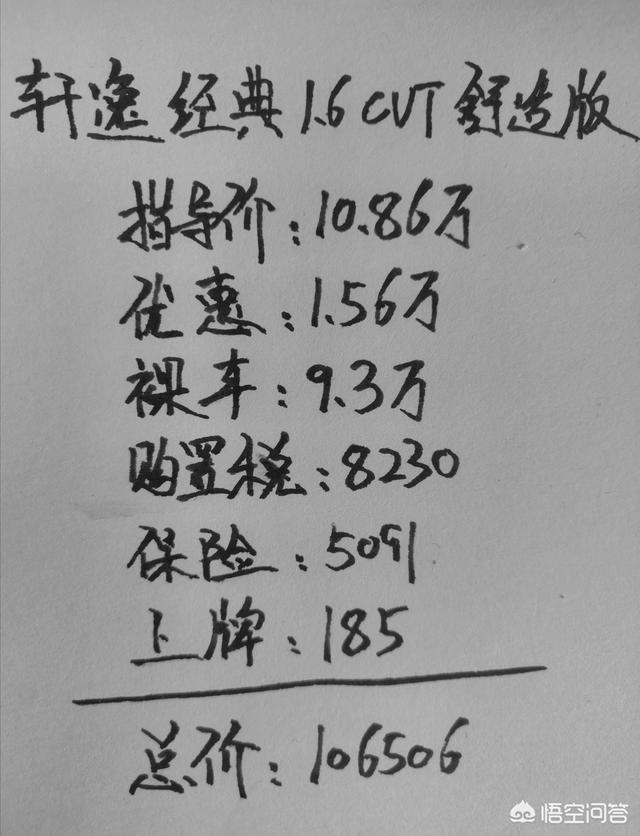 轩逸经典1.6CVT舒适版
指导价:10.86万
优惠:1.56万
裸车:9.3万
购置税:8230
保险:5091
上牌:185
总价:106506
悟空问答